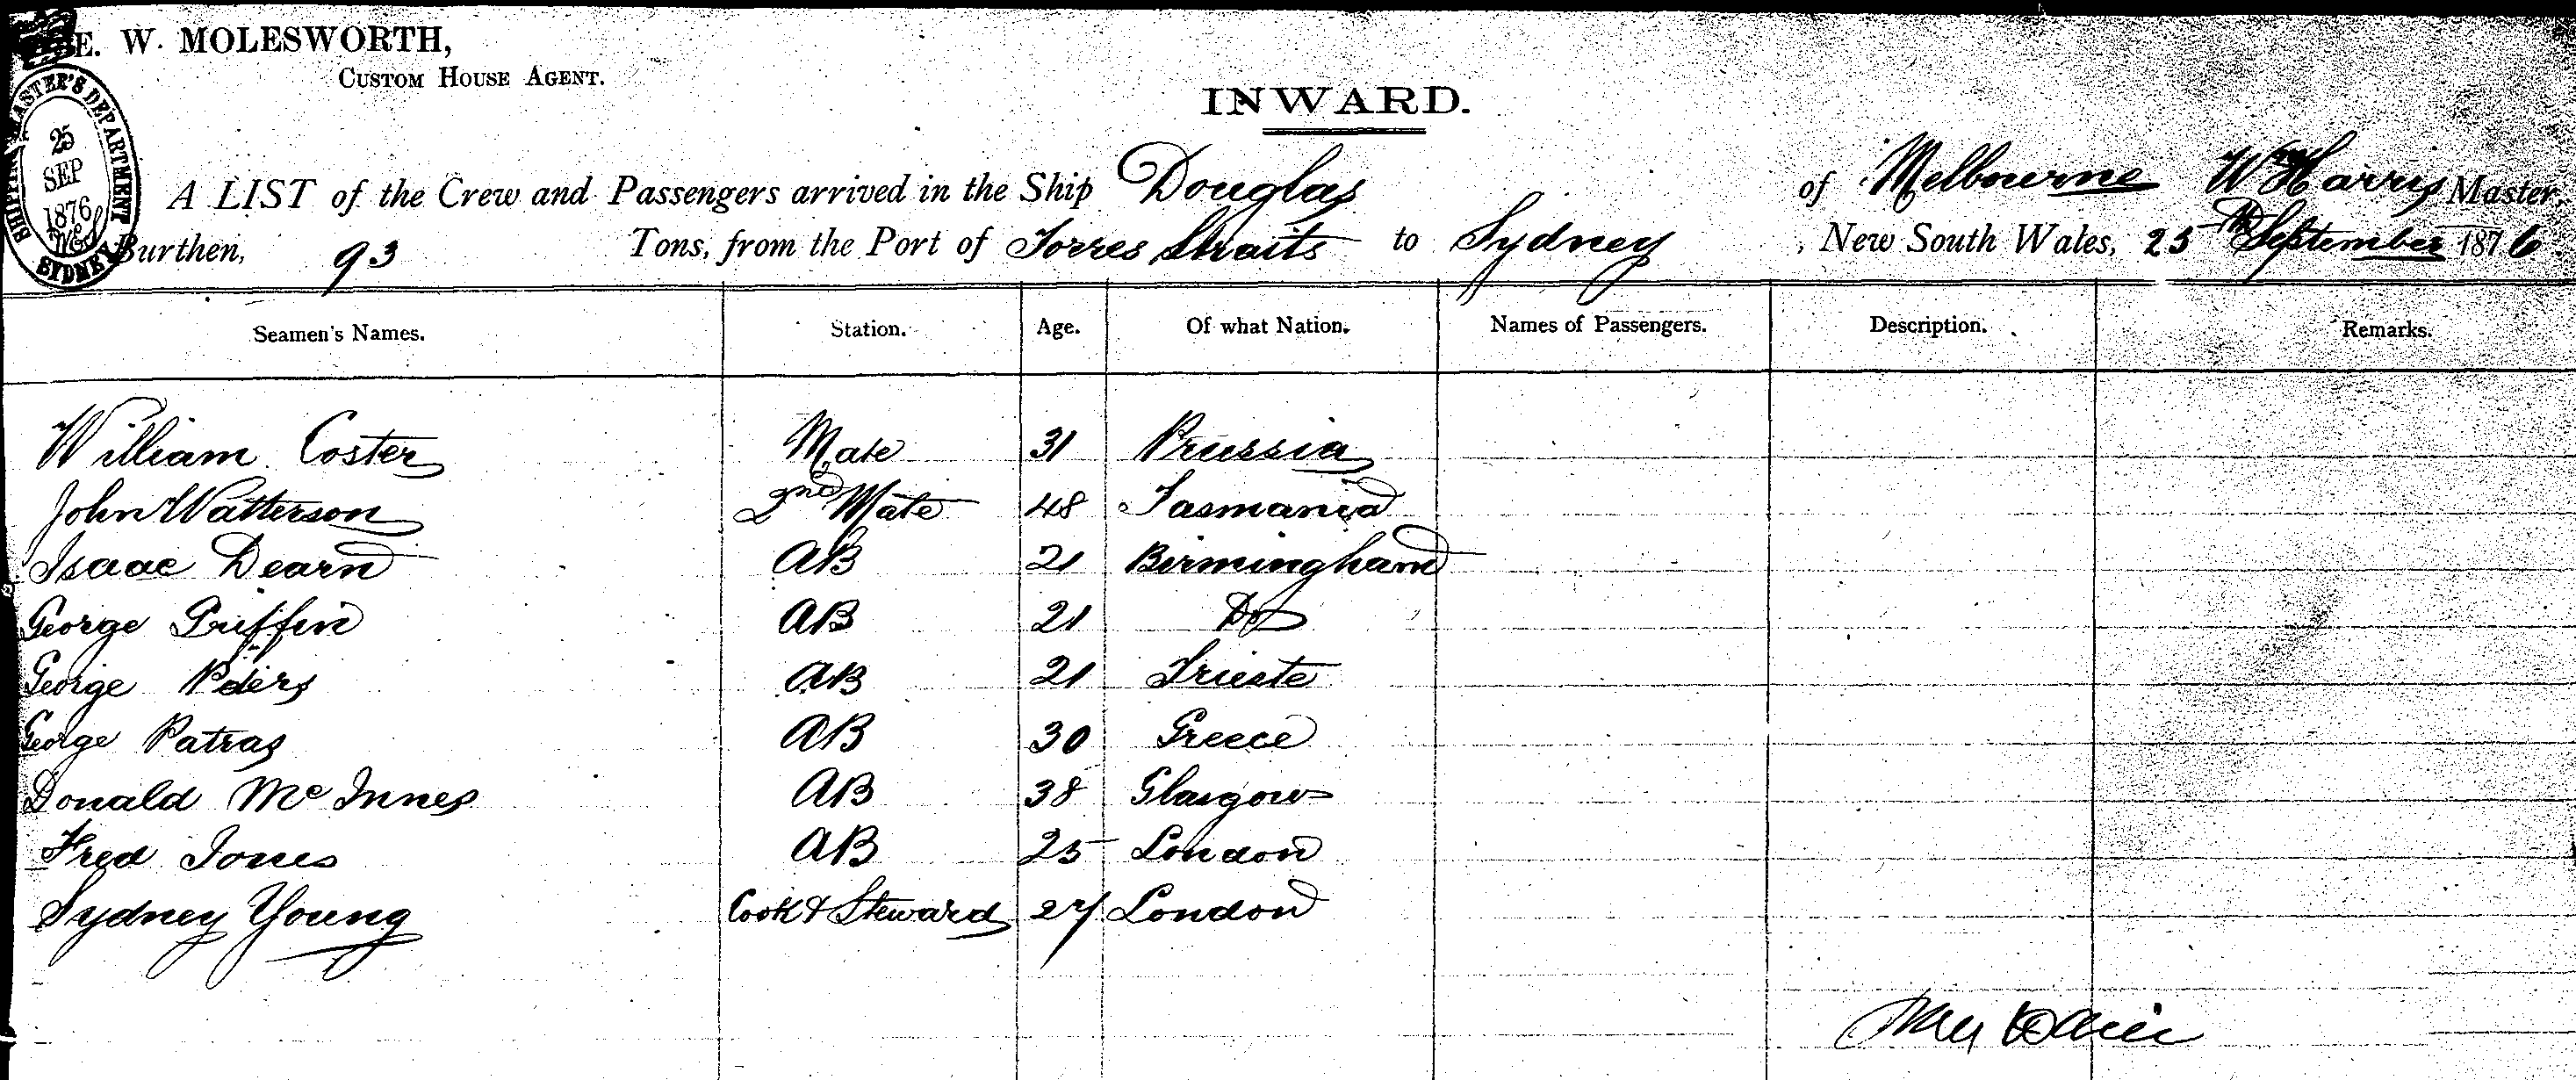 E. W. MOLESWORTH,
CUSTOM HOUSE AGENT.
SHIPPING MASTER'S DEPARTMENT
25
SEP
1876
SYDNEY
INWARD.
A LIST of the Crew and Passengers arrived in the Ship Douglas of Melbourne Wm Harris Master,
Burthen, 93 Tons, from the Port of Torres Straits to Sydney, New South Wales, 25th September 1876
Seamen's Names. Station. Age. Of what Nation. Names of Passengers. Description. Remarks.
William Coster Mate 31 Prussia
John Watterson 2nd Mate 48 Tasmania
Isaac Dearn AB 21 Birmingham
George Griffin AB 21 Do
George Peters AB 21 Trieste
George Patras AB 30 Greece
Donald McInnes AB 38 Glasgow
Fred Jones AB 25 London
Sydney Young Cook & Steward 27 London